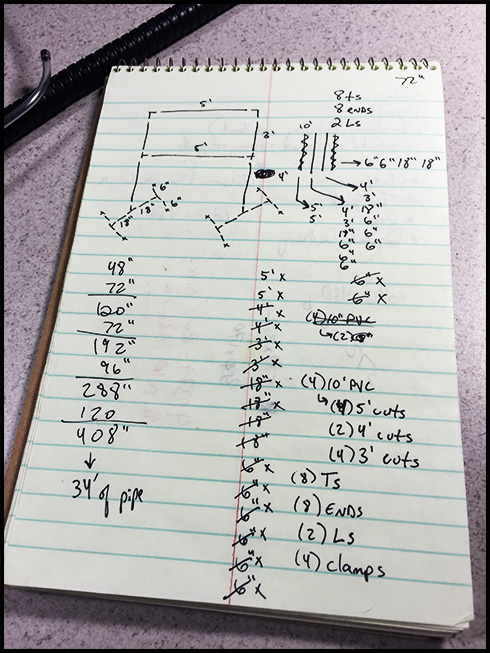 72"
8 ts
8 ENDS
2 Ls
5'
3'
5'
4'
6"
18"
18"
6"
10'
→ 6" 6" 18" 18"
5'
5'
4'
3'
4' 18"
3' 6"
18" 6"
6" 6"
6"
6"
6" X
6" X
(4) 10" PVC
48"
72"
120"
72"
192"
96"
288"
120
408"
↓
34' of pipe
5' X
5' X
4' X
4' X
3' X
3' X
18" X
18" X
18"
18"
6" X
6" X
6" X
6" X
6" X
6" X
(4) 10' PVC
↳ (4) 5' cuts
(2) 4' cuts
(4) 3' cuts
(8) Ts
(8) ENDS
(2) Ls
(4) clamps